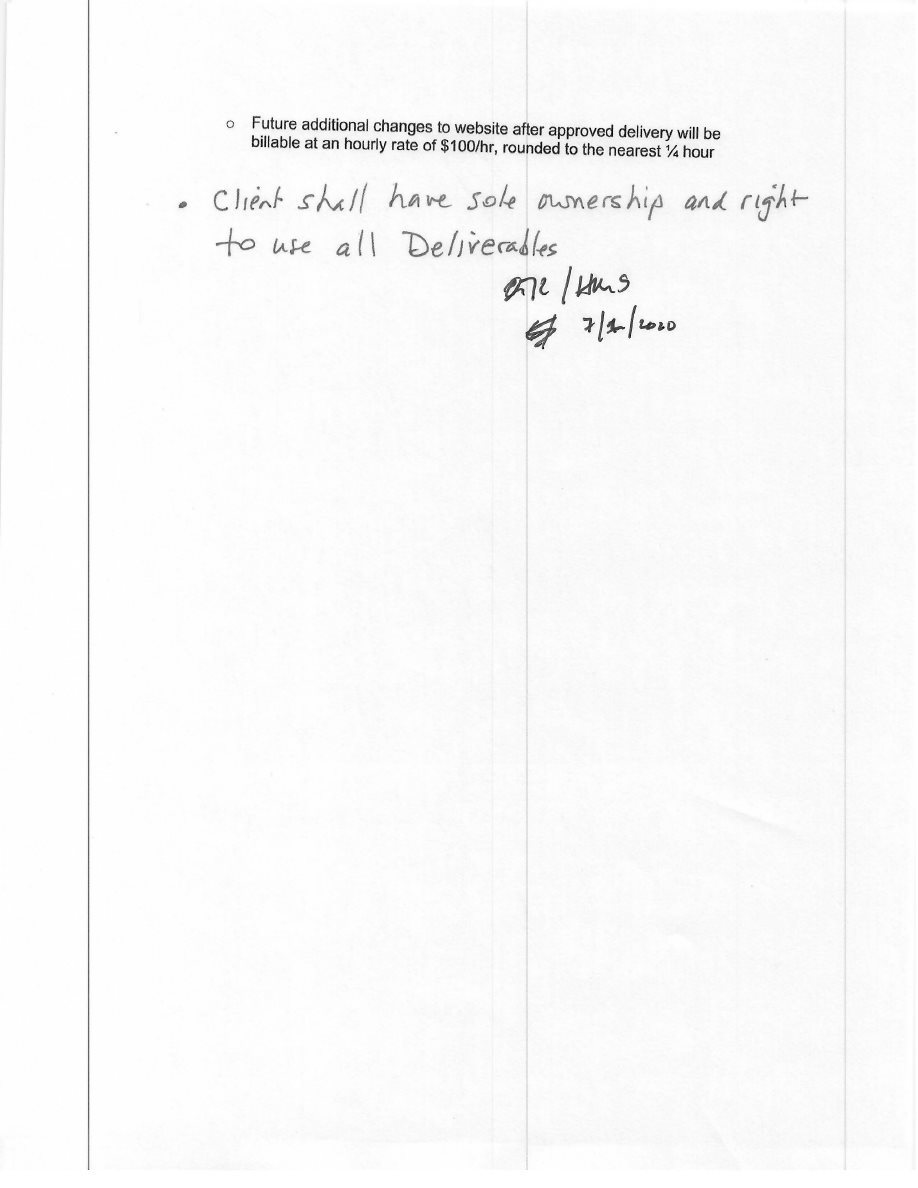 o Future additional changes to website after approved delivery will be
billable at an hourly rate of $100/hr, rounded to the nearest ¼ hour
• Client shall have sole ownership and right
to use all Deliverables